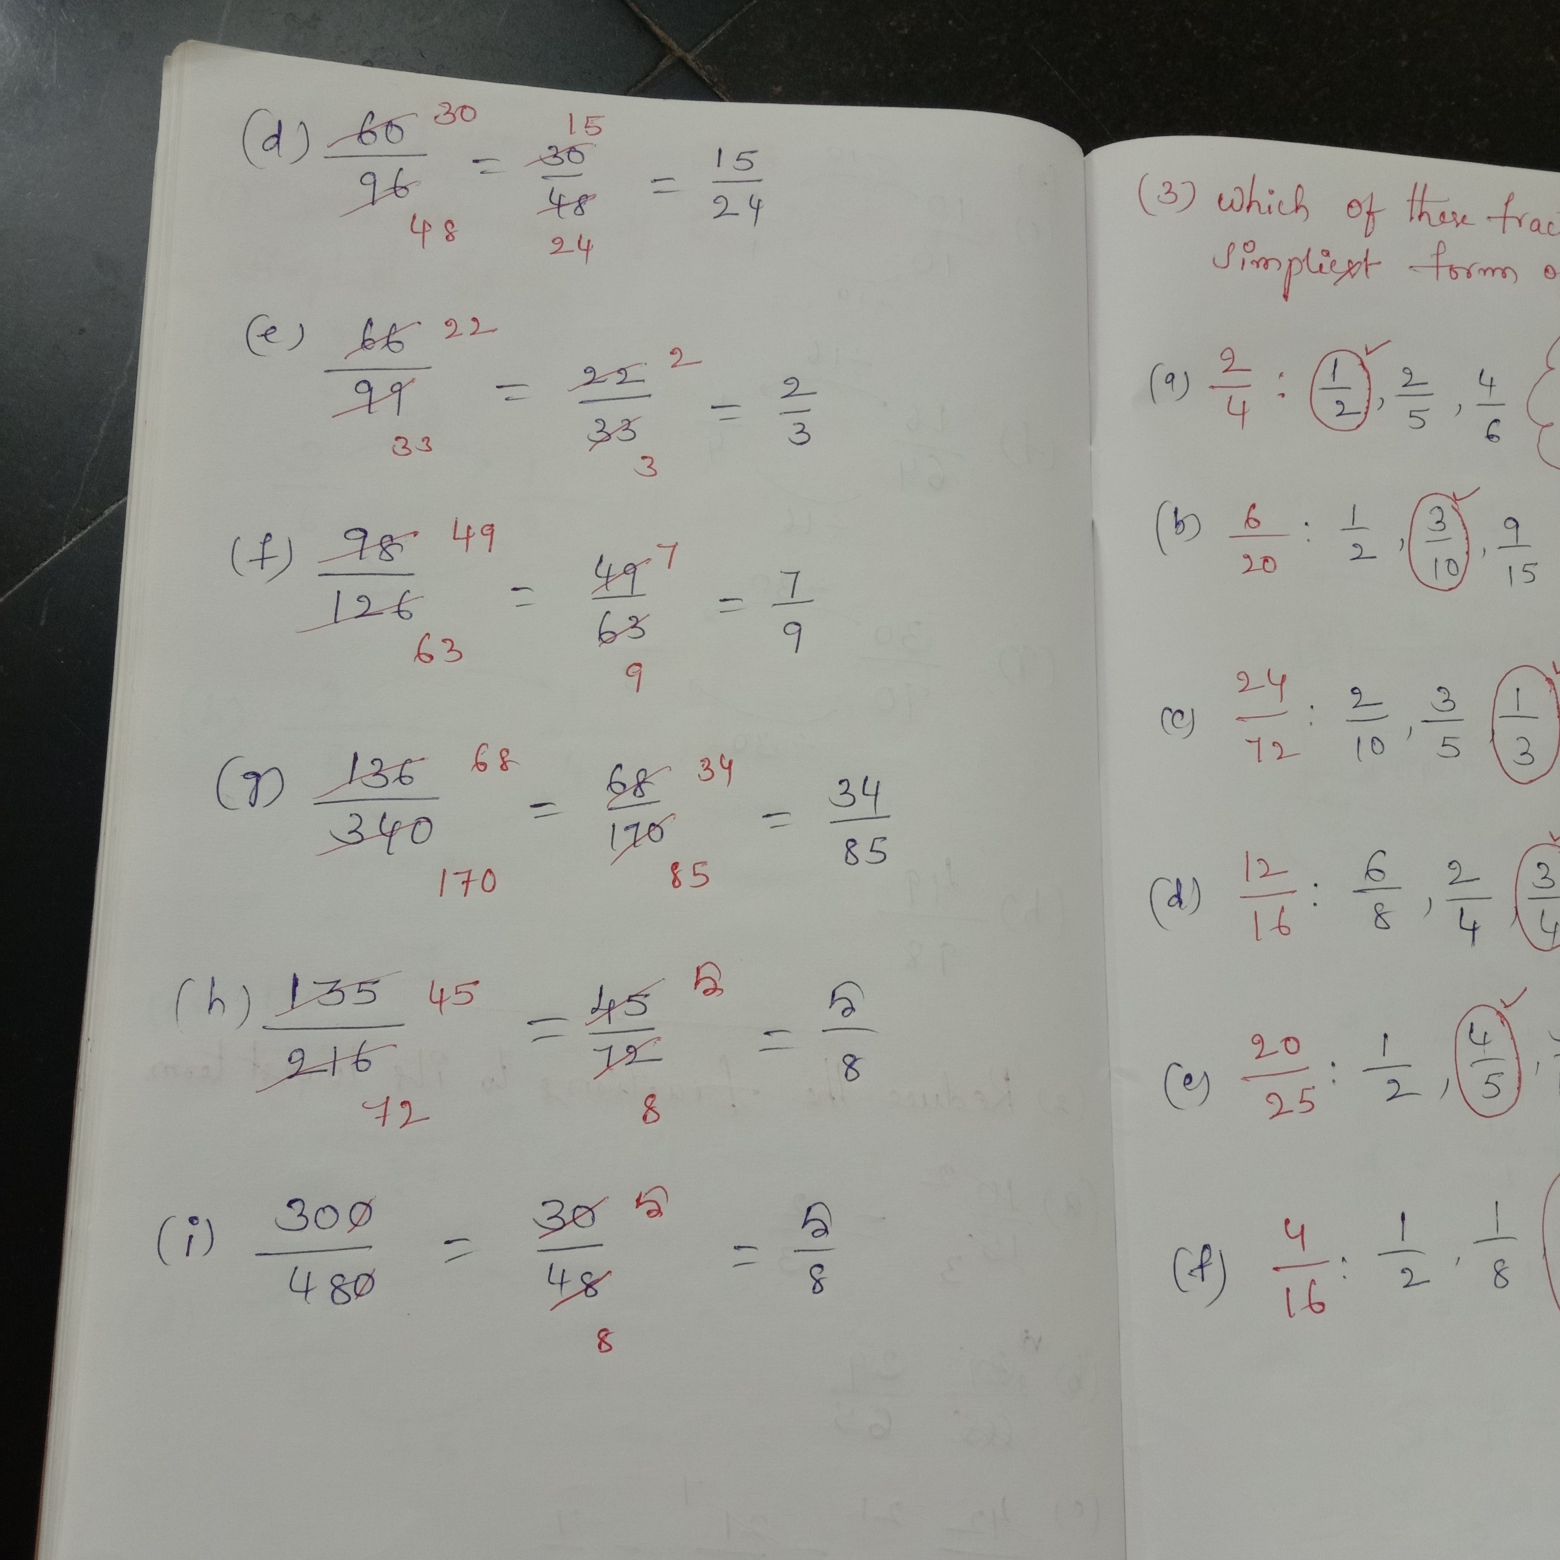 (d) 60/96 30 48 = 30/48 15 24 = 15/24
(e) 66/99 22 33 = 22/33 2 3 = 2/3
(f) 98/126 49 63 = 49/63 7 9 = 7/9
(g) 136/340 68 170 = 68/170 34 85 = 34/85
(h) 135/216 45 72 = 45/72 5 8 = 5/8
(i) 300/480 = 30/48 5 8 = 5/8
(3) which of these frac
simpliest form o
(a) 2/4 : 1/2 ✓, 2/5, 4/6
(b) 6/20 : 1/2, 3/10 ✓, 9/15
(c) 24/72 : 2/10, 3/5 1/3
(d) 12/16 : 6/8, 2/4, 3/4
(e) 20/25 : 1/2, 4/5 ✓,
(f) 4/16 : 1/2, 1/8